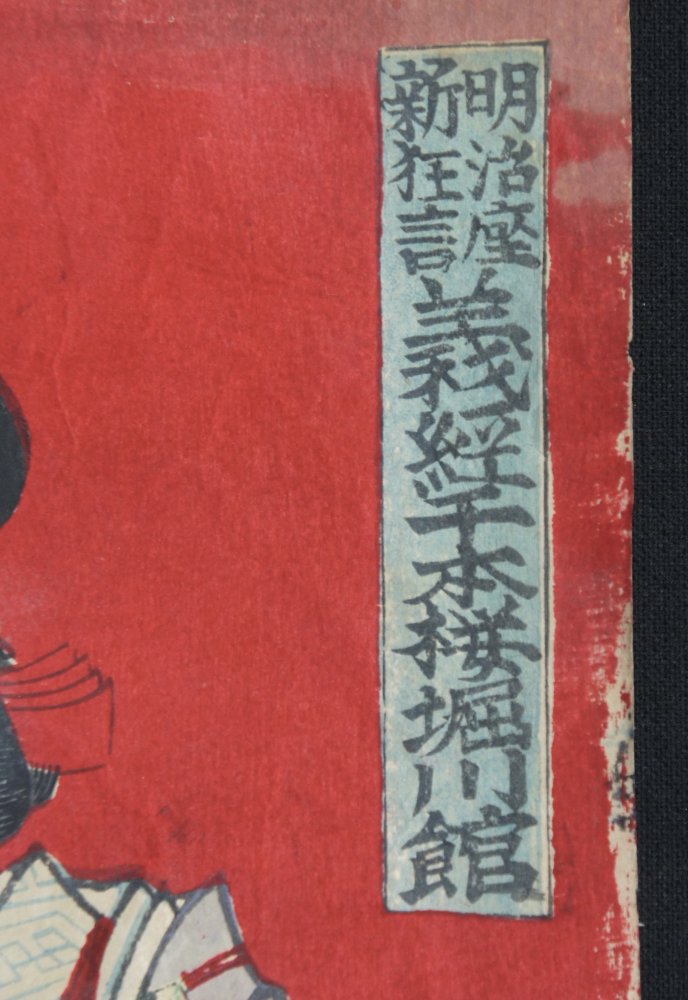 明治座
新狂言
義經千本桜堀川館